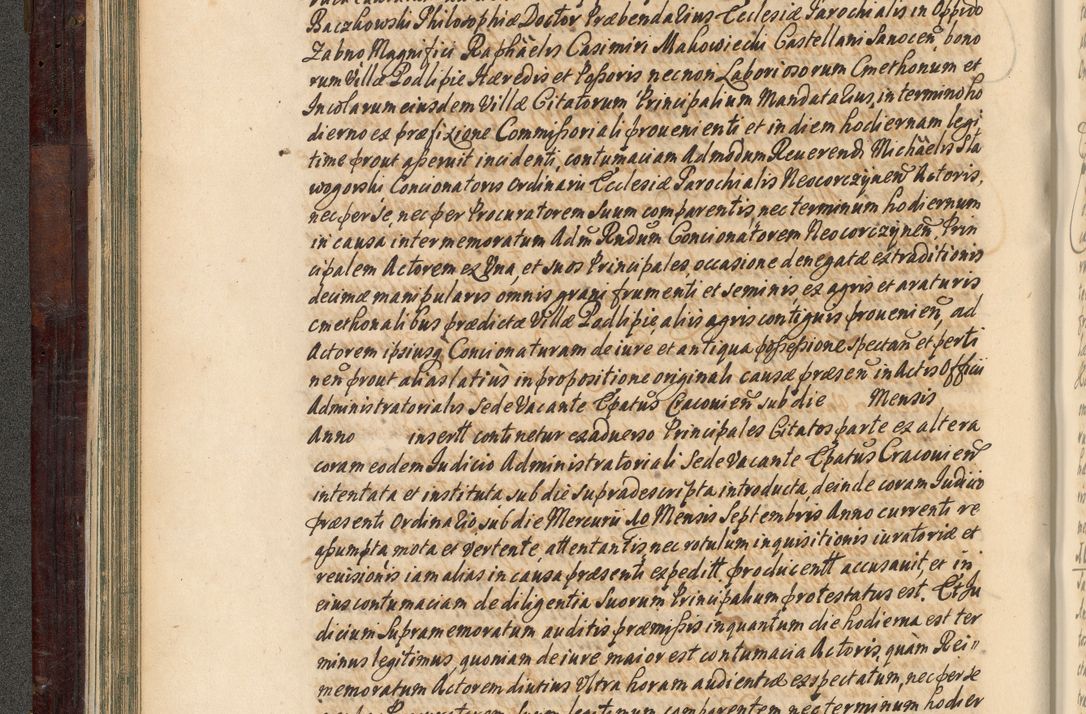 Baczkowski Philosophiæ Doctor Præbendarius Ecclesiæ Parochialis in Oppido
Zabno Magnifici Raphaelis Casimiri Makowiecki Castellani Sanoceñ, bono
rum Villæ Podlipie Hæredis et Possoris necnon Laboriosorum Cmethonum et
Incolarum eiusdem Villæ Citatorum Principalium Mandatarius, in termino ho
dierno ex præfixione Commissoriali proueni enti et in diem hodiernam legi
time prout asseruit incidenti, contumaciam Admodum Reuerendi Michaelis Sta
wogorski Concionatoris Ordinarii Ecclesiæ Parochialis Neocorczyneñ Actoris,
nec per se, nec per Procuratorem suum comparentis, nec terminum hodiernum
in causa inter memoratum Adm̃ Rndum Concionatorem Neocorczyneñ, Prin
cipalem Actorem ex Una, et suos Principales, occasione denegatæ extraditionis
decimæ manipularis omnis grani frumenti et seminis ex agris et araturis
cmethonalibus prædictæ Villæ Podlipie aliis agris contiguis prouenieñ, ad
Actorem ipsiusq Concionaturam de iure et antiqua possessione spectañ et perti
neñ prout alias latius in propositione originali causæ præseñ in Actis Officii
Administratorialis Sede Vacante Epatus Cracouieñ sub die Mensis
Anno insertt continetur ex aduerso Principales Citatos parte ex altera
coram eodem Iudicio Administratoriali Sede Vacante Epatus Cracouieñ
intentata et instituta, sub die supradescripta introducta, deinde coram Iudicio
præsenti Ordinario sub die Mercurii 10 Mensis Septembris Anno currenti re
assumpta mota et vertente, attentantis, nec rotulum inquisitionis iuratoriæ et
reuisionis iam alias in causa præsenti expeditt producentt accusauit, et in
eius contumaciam de diligentia suorum Principalium protestatus est. Et Iu
dicium supramemoratum auditis præmissis in quantum die hodierna est ter
minus legitimus, quoniam de iure maior est contumacia Actoris, quàm Rei
memoratum Actorem diutius Ultra horam audientiæ exspectatum, nec per se